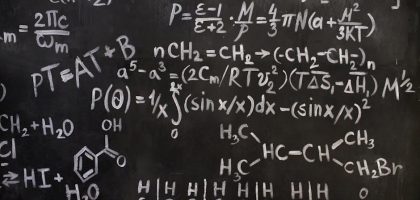 m = 2πc / ωm
P = ε-1/ε+2 · M/P = 4/3 πN(a + M²/3KT)
PT = AT + B
nCH₂=CH₂ → (-CH₂-CH₂-)n
a⁵-a³ = (2Cm/RTv₂²)(TΔS̄₁-ΔH̄₁) M½
P(θ) = 1/x ∫₀²ˣ (sin x/x)dx - (sin x/x)²
CH₂ + H₂O
OH
O
H₃C
CH₃
Cl
HC-CH
⇄ HI +
H₃C
CH₂Br
H₂O
H H H H H H H O